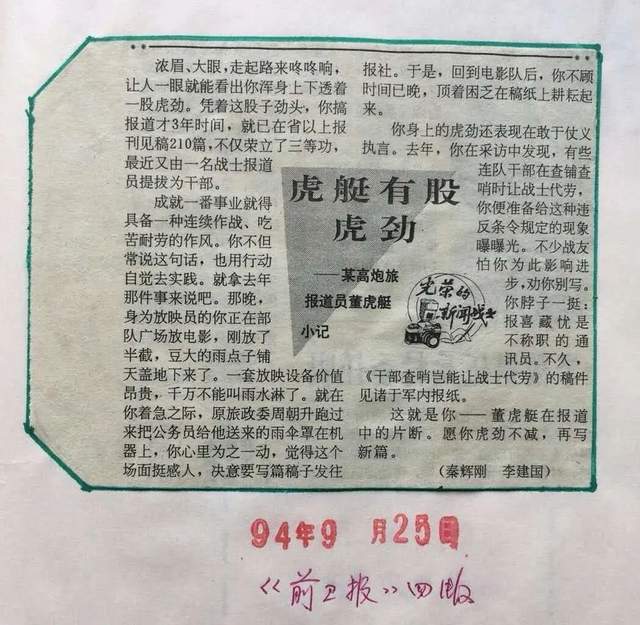 浓眉、大眼,走起路来咚咚响,
让人一眼就能看出你浑身上下透着
一股虎劲。凭着这股子劲头,你搞
报道才3年时间,就已在省以上报
刊见稿210篇,不仅荣立了三等功,
最近又由一名战士报道
员提拔为干部。
成就一番事业就得
具备一种连续作战、吃
苦耐劳的作风。你不但
常说这句话,也用行动
自觉去实践。就拿去年
那件事来说吧。那晚,
身为放映员的你正在部
队广场放电影,刚放了
半截,豆大的雨点子铺
天盖地下来了。一套放映设备价值
昂贵,千万不能叫雨水淋了。就在
你着急之际,原旅政委周朝升跑过
来把公务员给他送来的雨伞罩在机
器上,你心里为之一动,觉得这个
场面挺感人,决意要写篇稿子发往
虎艇有股
虎劲
——某高炮旅
报道员董虎艇
小记
光荣的
新闻战士
报社。于是,回到电影队后,你不顾
时间已晚,顶着困乏在稿纸上耕耘起
来。
你身上的虎劲还表现在敢于仗义
执言。去年,你在采访中发现,有些
连队干部在查铺查
哨时让战士代劳,
你便准备给这种违
反条令规定的现象
曝曝光。不少战友
怕你为此影响进
步,劝你别写。
你脖子一挺:
报喜藏忧是
不称职的通
讯员。不久,
《干部查哨岂能让战士代劳》的稿件
见诸于军内报纸。
这就是你——董虎艇在报道
中的片断。愿你虎劲不减,再写
新篇。
(秦辉刚 李建国)
94年9月25日
《前卫报》四版